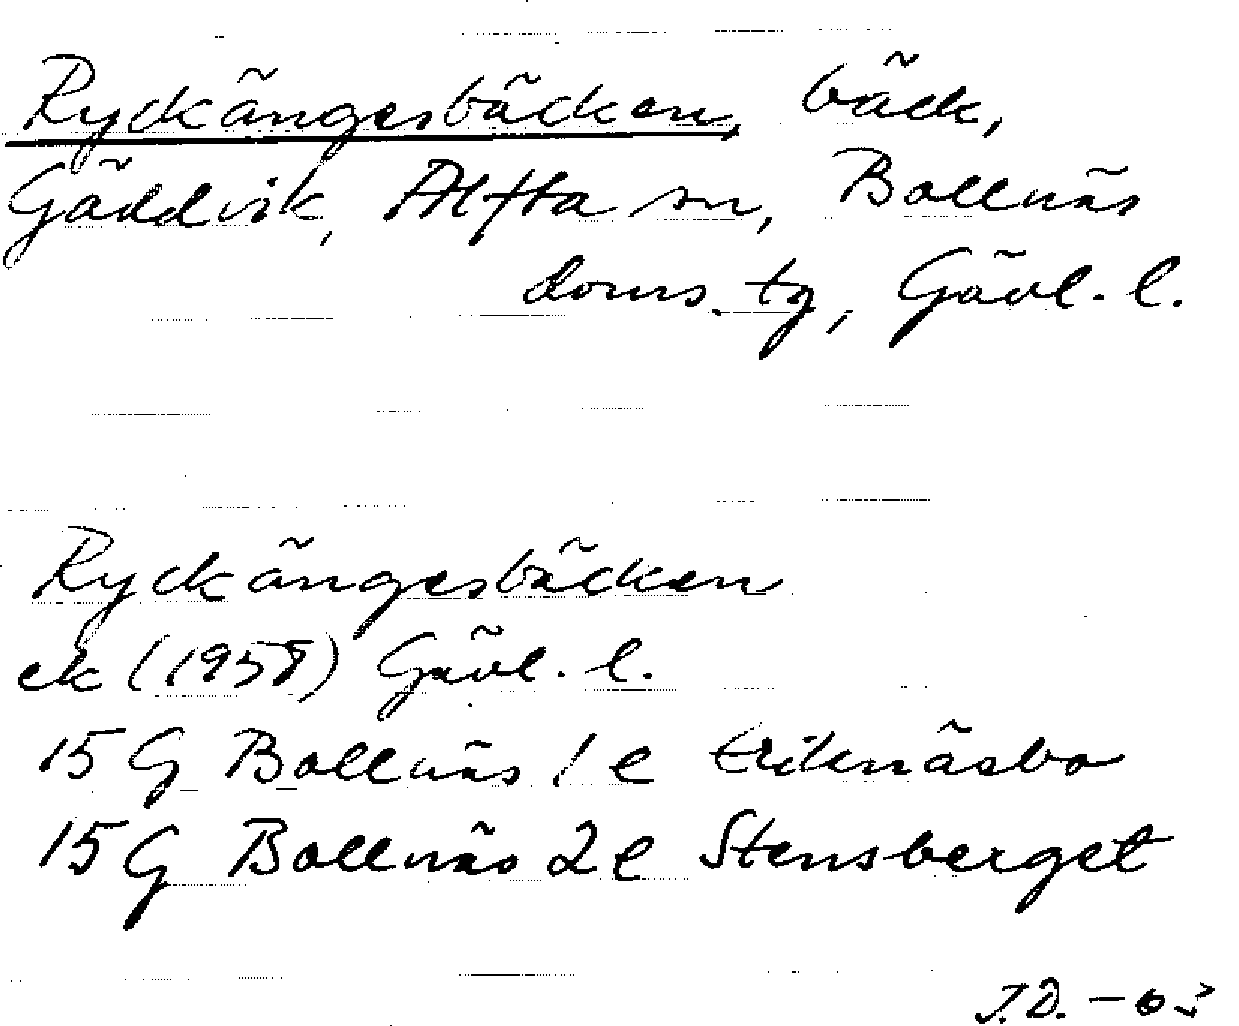 Ryckängesbäcken, bäck,
Gäddvik, Alfta sn, Bollnäs
doms. tg, Gävl. l.
Ryckängesbäcken
ek (1958) Gävl. l.
15 G Bollnäs 1 e Eriknäsbo
15 G Bollnäs 2 e Stensberget
J.D. – 03